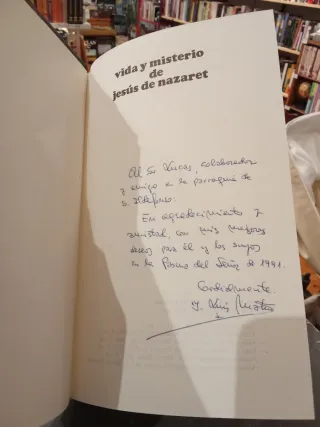 vida y misterio
de
jesús de nazaret
Al Sr Lucas, colaborador
y amigo en la parroquia de
S. Ildefonso:
En agradecimiento y
amistad, con mis mejores
deseos para él y los suyos
en la Pascua del Señor de 1991.
Cordialmente.
J. Luis